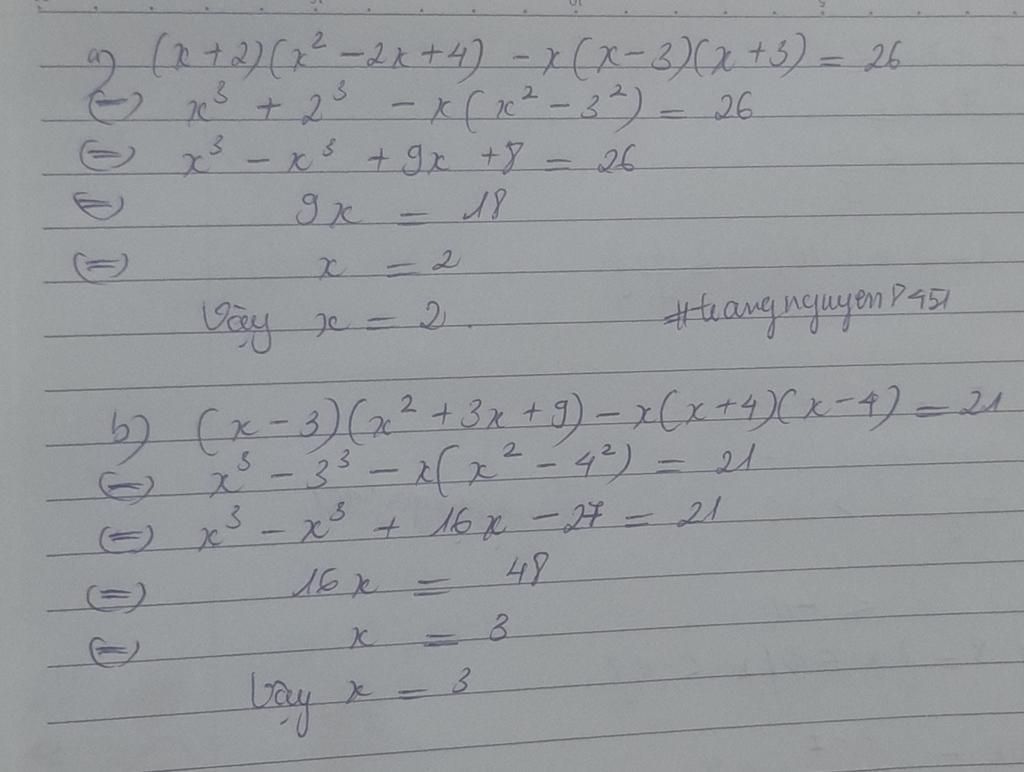 a) (x+2)(x² - 2x+4) - x(x-3)(x+3) = 26
(=) x³ + 2³ - x(x² - 3²) = 26
(=) x³ - x³ + 9x + 8 = 26
(=) 9x = 18
(=) x = 2
Vậy x = 2.
#trangnguyen7451
b) (x-3)(x² + 3x + 9) - x(x+4)(x-4) = 21
(=) x³ - 3³ - x(x² - 4²) = 21
(=) x³ - x³ + 16x - 27 = 21
(=) 16x = 48
(=) x = 3
Vậy x = 3